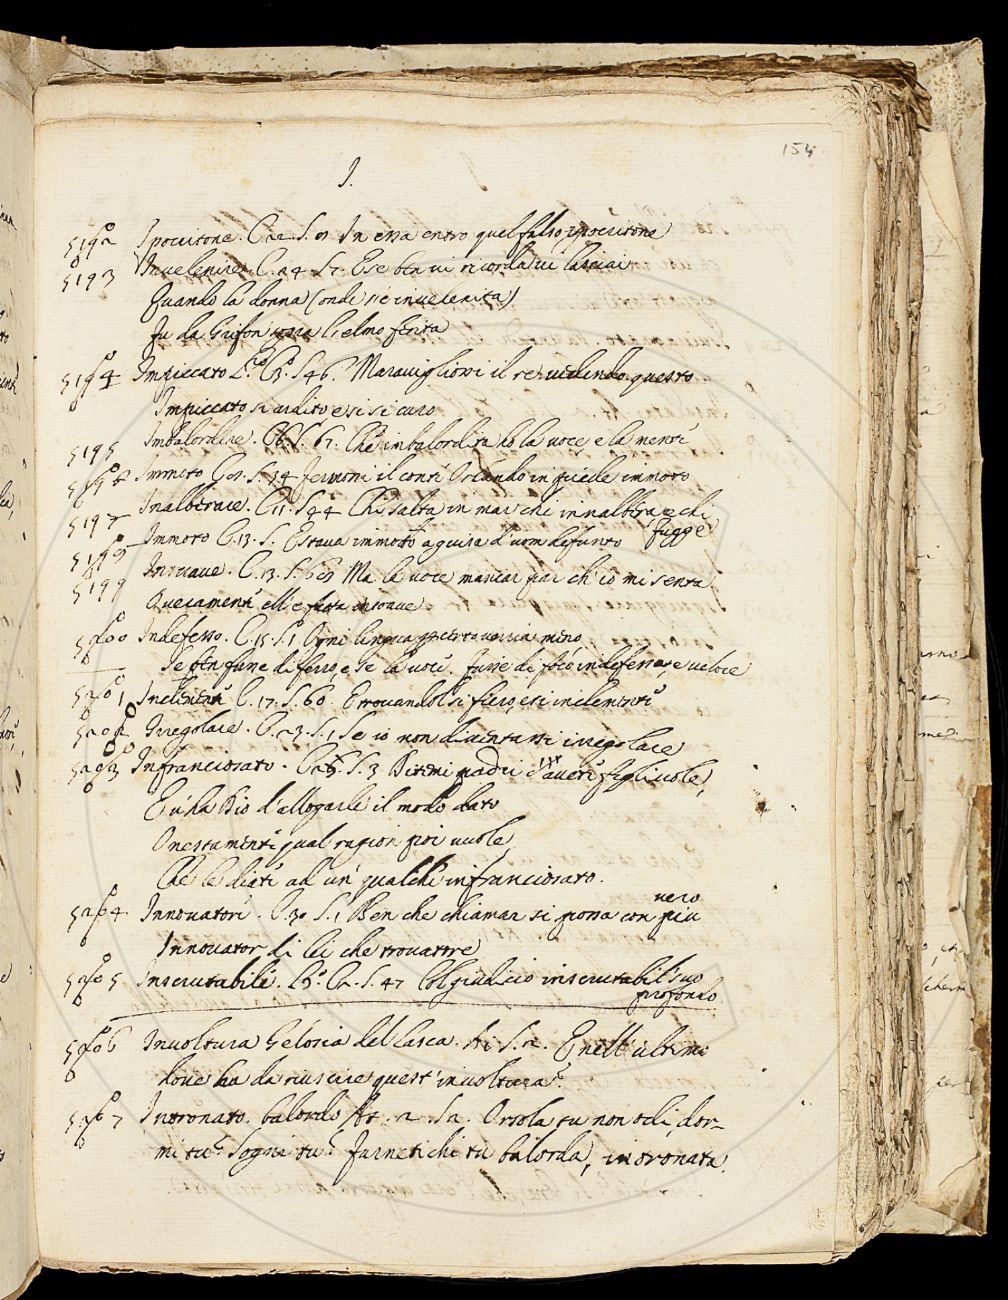 154
I.
5192 Ipocritone. C. 22. S. 9 In essa entro quel falso, ipocritone
5193 Invelenire C. 24 S. 7 E se ben vi ricorda vi lasciai
Quando la donna (ond' è invelenita)
Fu da Grifon sopra l'elmo ferita
5194 Impiccato L.º C. 3.º S. 46. Maravigliossi il re vedendo questo
Impiccato sì ardito e sì sicuro
5195 Imbalordire. C. 6. S. 67. Che imbalordita ho la voce, e la mente
5196 Immoto C. 9. S. 74 Fermossi il conte Orlando in piede immoto
5197 Inalberare. C. 11. S. 44 Chi salta in mar chi innalbera, e chi
fugge
5198 Immoto C. 13. S. Estava immoto a guisa d'uom defunto
5199 Insoave. C. 13. S. 69 Ma la voce mancar par ch'io mi senta
Aver. ell'è stata insoave
5200 Indefesso. C. 15. S. 1 Ogni lingua per certo verria meno
Se ben fune di ferro, e se la voce. Fusse di foco indefessa, e veloce
5201 Inclemente C. 17. S. 60. E trovandol sì fiero, e sì inclemente
5202 Irregolare. C. 23. S. 1 Se io non diventassi irregolare
5203 Infranciosato. C. 25. S. 3 Ditemi padri ch'avete figliuole,
E v'ha Dio d'allogarle il modo dato
Onestamente qual ragion poi vuole
Che le diate ad un qualche infranciosato.
5204 Innovatore. C. 30 S. 1 Ben che chiamar si possa con più
vero
Innovator di lei che trovatore
5205 Inscrutabile. L. 3.º C. 2. S. 47 Col giudicio inscrutabil suo
profondo
5206 Involtura Gelosia del Lasca. At. S. 2. E nell'ultimo
dove ha da riuscire quest'involtura?
5207 Intronato. balordo At. 2. S. 2. Orsola tu non odi, dor-
mi tu? Sogni tu? Farnetichi tu balorda, intronata.